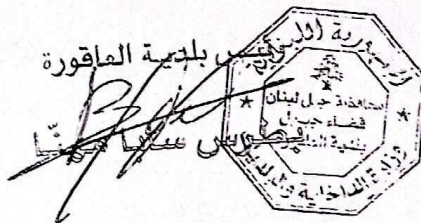 رئيس بلدية العاقورة
بطرس سابا مهنّا
الجمهورية اللبنانية
محافظة جبل لبنان
قضاء جبيل
بلدية العاقورة
وزارة الداخلية والبلديات